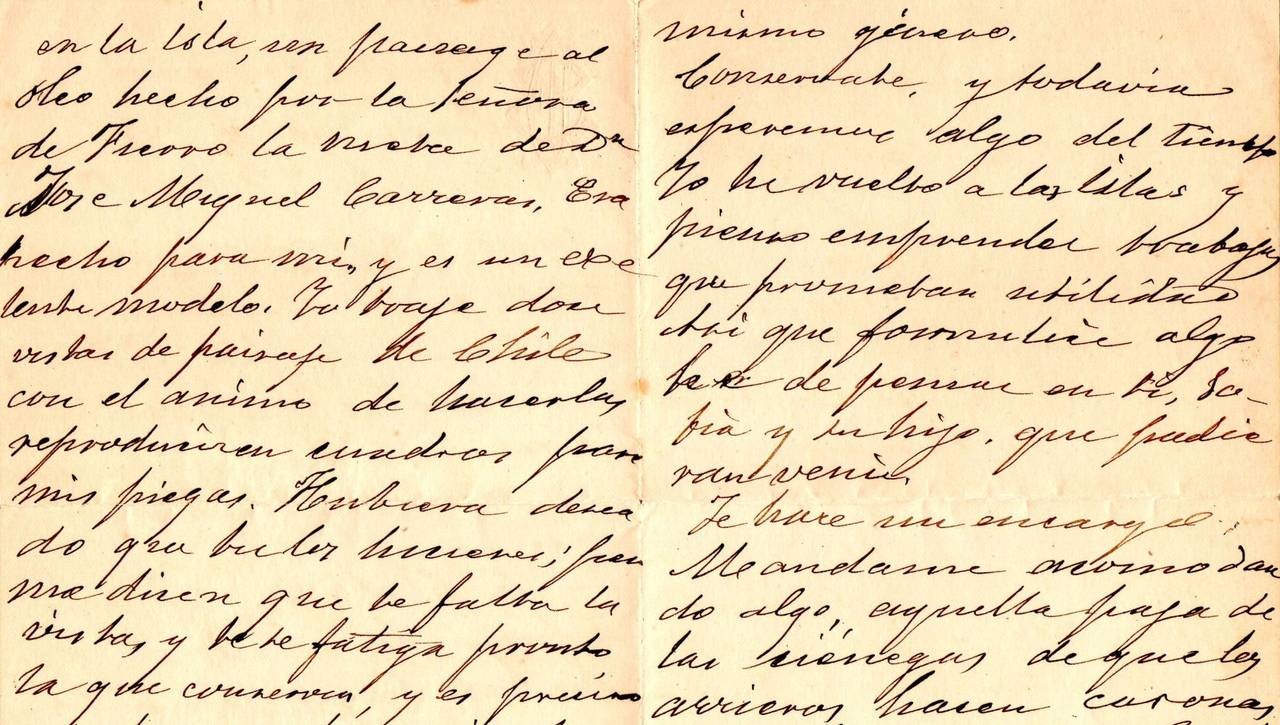 en la isla, un paisage al
oleo hecho por la señora
de Fierro la nieta de Dn
Jose Miguel Carreras, Era
hecho para mi, y es un exe
lente modelo. Yo traje dose
vistas de paisaje de Chile
con el animo de hacerlas
reproducir en cuadros para
mis piezas. Hubiera desea
do que tu los hicieras; pero
me dicen que te falta la
vista, y te se fatiga pronto
la que conservas, y es preciso
mismo género.
Conservate, y todavia
esperemos algo del tiempo
Yo he vuelto a las Islas y
pienso emprender trabajos
que prometan utilidad
Asi que formalice algo
he de pensar en ti, So-
fia y tu hijo, que pudie
ran venir.
Te hare un encargo:
Mandame acomodan
do algo, aquella paja de
las cienegas de que los
arrieros hacen coronas